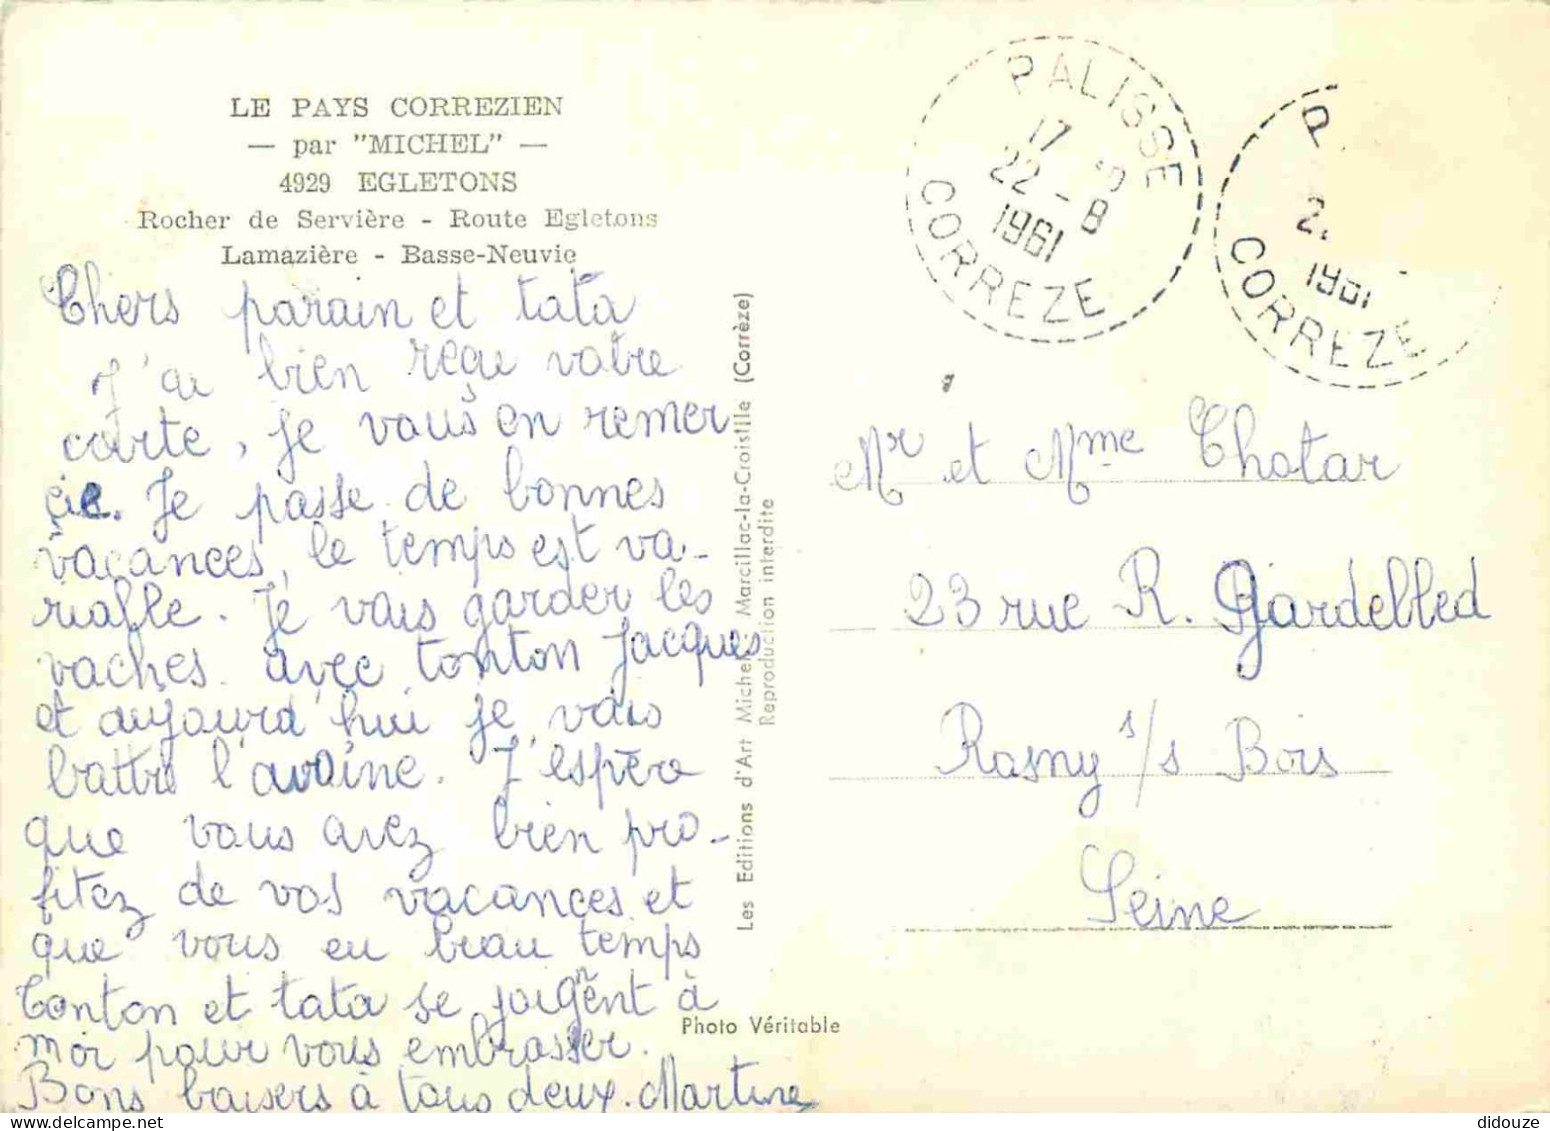 LE PAYS CORREZIEN
— par "MICHEL" —
4929 EGLETONS
Rocher de Servière - Route Egletons
Lamazière - Basse-Neuvic
Chers parain et tata
J'ai bien reçu votre
carte, je vous en remer
cie. Je passe de bonnes
vacances, le temps est va-
riable. Je vais garder les
vaches avec tonton Jacques
et aujourd'hui je vais
battre l'avoine. J'espère
que vous avez bien pro-
fitez de vos vacances et
que vous eu beau temps
Tonton et tata se joignent à
moi pour vous embrasser.
Bons baisers à tous deux. Martine
Les Editions d'Art Michel, Marcillac-la-Croisille (Corrèze)
Reproduction interdite
Photo Véritable
PALISSE
17
22 - 8
1961
CORREZE
P
2
1961
CORREZE
Mr et Mme Chotar
23 rue R.
Rosny s/s Bois
Seine
didouze
delcampe.net